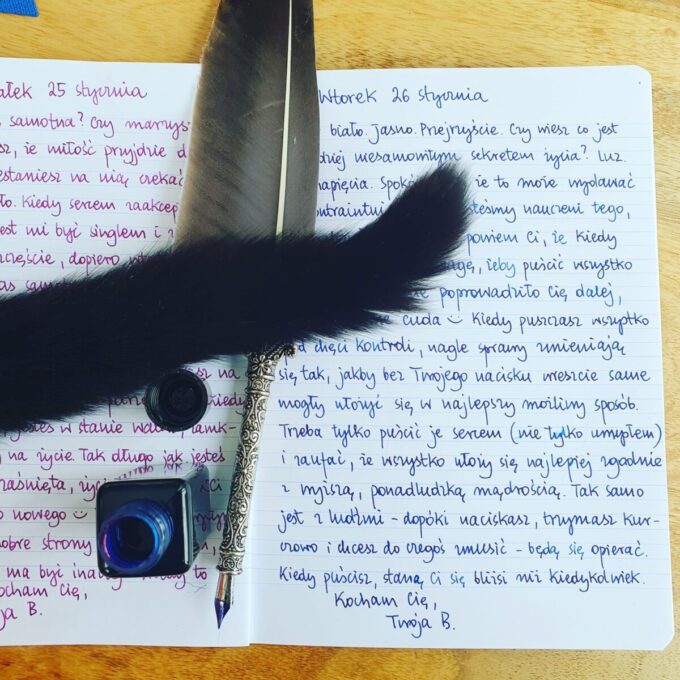 ałek 25 stycznia
samotna? Czy marzysz
sz, że miłość przyjdzie d
estaniesz na nią czekać
ło. Kiedy sercem zaakcep
est mi być singlem i
zczęście, dopiero
as
na
kiedy
jesteś w stanie
na życie. Tak długo jak jesteś
o nowego
obre strony
ma być to
ocham Cię,
ja B.
Wtorek 26 stycznia
biało. Jasno. Przejrzyście. Czy wiesz co jest
dziej niesamowitym sekretem życia? Luz.
napięcia. Spokój że to może wydawać
kontraintui steśmy nauczeni tego,
powiem Ci, że kiedy
agę, żeby puścić wszystko
poprowadziło Cię dalej,
cuda :) Kiedy puszczasz wszystko
od chęci kontroli, nagle sprawy zmieniają
się tak, jakby bez Twojego nacisku wreszcie same
mogły ułożyć się w najlepszy możliwy sposób.
Trzeba tylko puścić je sercem (nie tylko umysłem)
i zaufać, że wszystko ułoży się najlepiej zgodnie
z wyższą, ponadludzką mądrością. Tak samo
jest z ludźmi - dopóki naciskasz, trzymasz kur-
czowo i chcesz do czegoś zmusić - będą się opierać.
Kiedy puścisz, staną Ci się bliżsi niż kiedykolwiek.
Kocham Cię,
Twoja B.